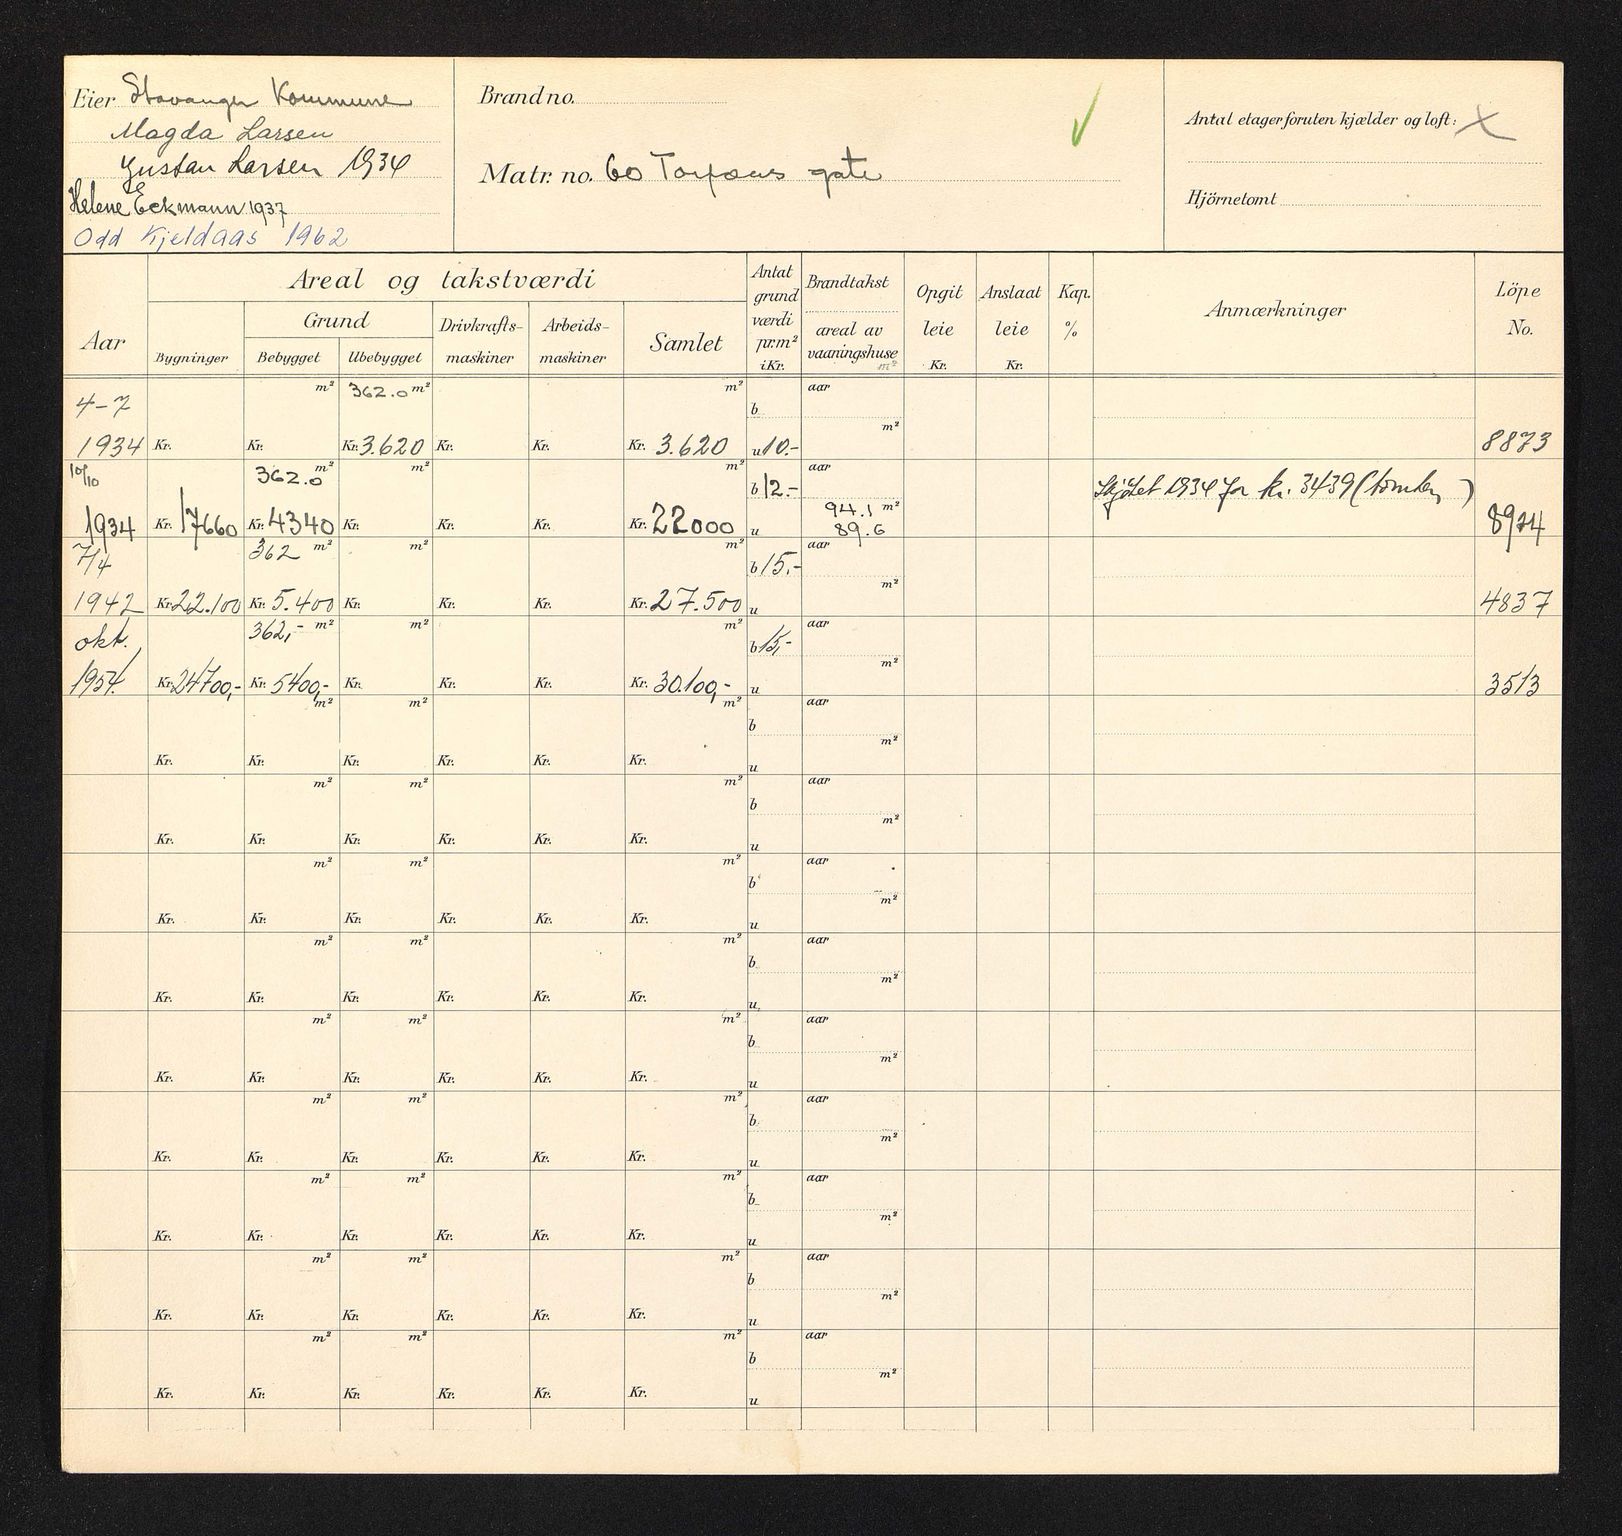 Eier Stavanger Kommune
Magda Larsen
Gustav Larsen 1934
Helene Eckmann 1937
Odd Kjeldaas 1962
Brand no.
Matr. no. 60 Torfæus gate
Antal etager foruten kjælder og loft:
Hjörnetomt
Aar
Areal og takstværdi
Bygninger
Grund
Bebygget
Ubebygget
Drivkrafts-
maskiner
Arbeids-
maskiner
Samlet
Antat
grund
værdi
pr.m²
i Kr.
Brandtakst
areal av
vaaningshuse
m²
Opgit
leie
Kr.
Anslaat
leie
Kr.
Kap.
%
Anmærkninger
Löpe
No.
m² 362.0 m² m² aar
4-7 b
m²
1934 Kr. Kr. Kr. 3.620 Kr. Kr. Kr. 3.620 u 10.- 8873
10/10 362.0 m² m² m² aar
b 12.- Skjötet 1934 for kr. 3439 (tomten)
94.1 m²
1934 Kr. 17660 Kr. 4340 Kr. Kr. 22000 u 89.6 8974
7/4 362 m² m² m² aar
b 15.-
m²
1942 Kr. 22.100 Kr. 5.400 Kr. Kr. Kr. Kr. 27.500 u 4837
362,- m² m² m² aar
okt. b 15,-
m²
1954. Kr. 24700,- Kr. 5400,- Kr. Kr. Kr. Kr. 30.100,- u 3513
m² m² m² aar
b
m²
Kr. Kr. Kr. Kr. Kr. Kr. u
m² m² m² aar
b
m²
Kr. Kr. Kr. Kr. Kr. Kr. u
m² m² m² aar
b
m²
Kr. Kr. Kr. Kr. Kr. Kr. u
m² m² m² aar
b
m²
Kr. Kr. Kr. Kr. Kr. Kr. u
m² m² m² aar
b
m²
Kr. Kr. Kr. Kr. Kr. Kr. u
m² m² m² aar
b
m²
Kr. Kr. Kr. Kr. Kr. Kr. u
m² m² m² aar
b
m²
Kr. Kr. Kr. Kr. Kr. Kr. u
m² m² m² aar
b
m²
Kr. Kr. Kr. Kr. Kr. Kr. u
m² m² m² aar
b
m²
Kr. Kr. Kr. Kr. Kr. Kr. u